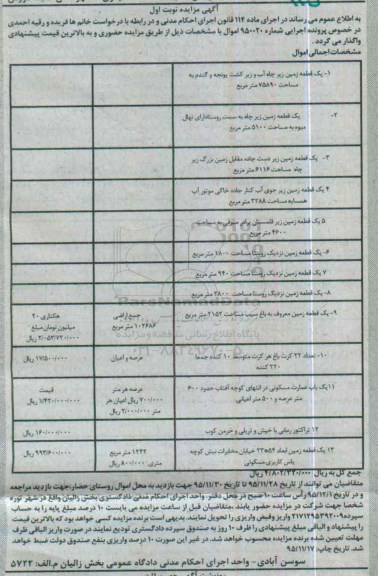 آگهی مزایده نوبت اول
به اطلاع عموم می رساند در اجرای ماده ۱۱۴ قانون اجرای احکام مدنی و در رابطه با درخواست خانم ها فریده و رقیه احمدی
در خصوص پرونده اجرایی شماره ۹۵۰۰۲۰ اموال با مشخصات ذیل از طریق مزایده حضوری و به بالاترین قیمت پیشنهادی
واگذار می گردد.
مشخصات اجمالی اموال
۱- یک قطعه زمین زیر چاه آب و زیر کشت یونجه و گندم به
مساحت ۷۵۸۹۰ متر مربع
۲- یک قطعه زمین زیر چاه به سمت روستا دارای نهال
میوه به مساحت ۵۱۰۰ متر مربع
۳- یک قطعه زمین زیر دست جاده مقابل زمین بزرگ زیر
چاه مساحت ۶۱۱۶ متر مربع
۴ یک قطعه زمین زیر جوی آب کنار جاده خاکی موتور آب
همسایه مساحت ۳۲۸۸ متر مربع
۵ یک قطعه زمین زیر قلمستان
۴۶۰۰ متر مربع
۶- یک قطعه زمین نزدیک روستا مساحت ۱۸۰۰ متر مربع
۷ یک قطعه زمین نزدیک روستا مساحت ۹۴۰ متر مربع
۸- یک قطعه زمین نزدیک روستا مساحت ۲۸۰۰ متر مربع
۹- یک قطعه زمین معروف به باغ سیب مساحت ۲۱۵۲ متر مربع
جمع اراضی
۱۰۲۶۸۶ متر مربع
هکتاری ۲۰
میلیون تومان مبلغ
۲/۰۵۳/۷۲۰/۰۰۰ ریال
۱۰- تعداد ۲۲ کرت باغ هر کرت متوسط ۱۰ کنده جمعا
۲۲۰ کنده
عرصه و اعیان
۱۷/۵۰۰/۰۰۰ ریال
۱۱ یک باب عمارت مسکونی در انتهای کوچه آفتاب حدود ۶۰۰
متر عرصه و ۵۰۰ متر اعیانی
عرصه هر متر
۷۰۰/۰۰۰ ریال اعیان هر
متر ۲/۰۰۰/۰۰۰ ریال
قیمت
۱/۴۲۰/۰۰۰/۰۰۰ ریال
۱۲ تراکتور رمانی با خیش و تریلی و خرمن کوب
۱۶۰/۰۰۰/۰۰۰ ریال
۱۳ یک قطعه زمین ابعاد ۵۴*۲۳ خیابان مخابرات نبش کوچه
یاس کاربری مسکونی
۱۲۴۲ متر مربع
متری ۸۰۰/۰۰۰ ریال
۹۹۳/۶۰۰/۰۰۰ ریال
جمع کل به ریال
متقاضیان می توانند از تاریخ ۹۵/۱۱/۲۸ تا تاریخ ۹۵/۱۱/۳۰ جهت بازدید به محل اموال روستای حصار، جهت بازدید مراجعه
و در تاریخ ۹۵/۱۲/۱ رأس ساعت ۱۰ صبح در محل دفتر واحد اجرای احکام مدنی دادگستری بخش زالیان واقع در شهر توره
شخصا جهت شرکت در مزایده حضور یابند، متقاضیان قبل از ساعت مزایده می بایست ۱۰ درصد مبلغ پایه را به حساب
سپرده ۲۱۷۱۲۹۵۳۹۲۰۰۹ واریز وفیش واریزی را تحویل نمایند. بدیهی است برنده مزایده کسی خواهد بود که بالاترین قیمت
را پیشنهاد و الباقی مبلغ پیشنهادی را ظرف ۱۰ روز به صندوق سپرده دادگستری تودیع نمایند، در صورت واریز الباقی ظرف
مهلت تعیین شده برنده مزایده محسوب خواهد شد. در غیر این صورت ۱۰ درصد واریزی بنفع صندوق دولت ضبط خواهد
شد. تاریخ چاپ: ۹۵/۱۱/۱۷
سوسن آبادی - واحد اجرای احکام مدنی دادگاه عمومی بخش زالیان م.الف: ۵۷۲۲